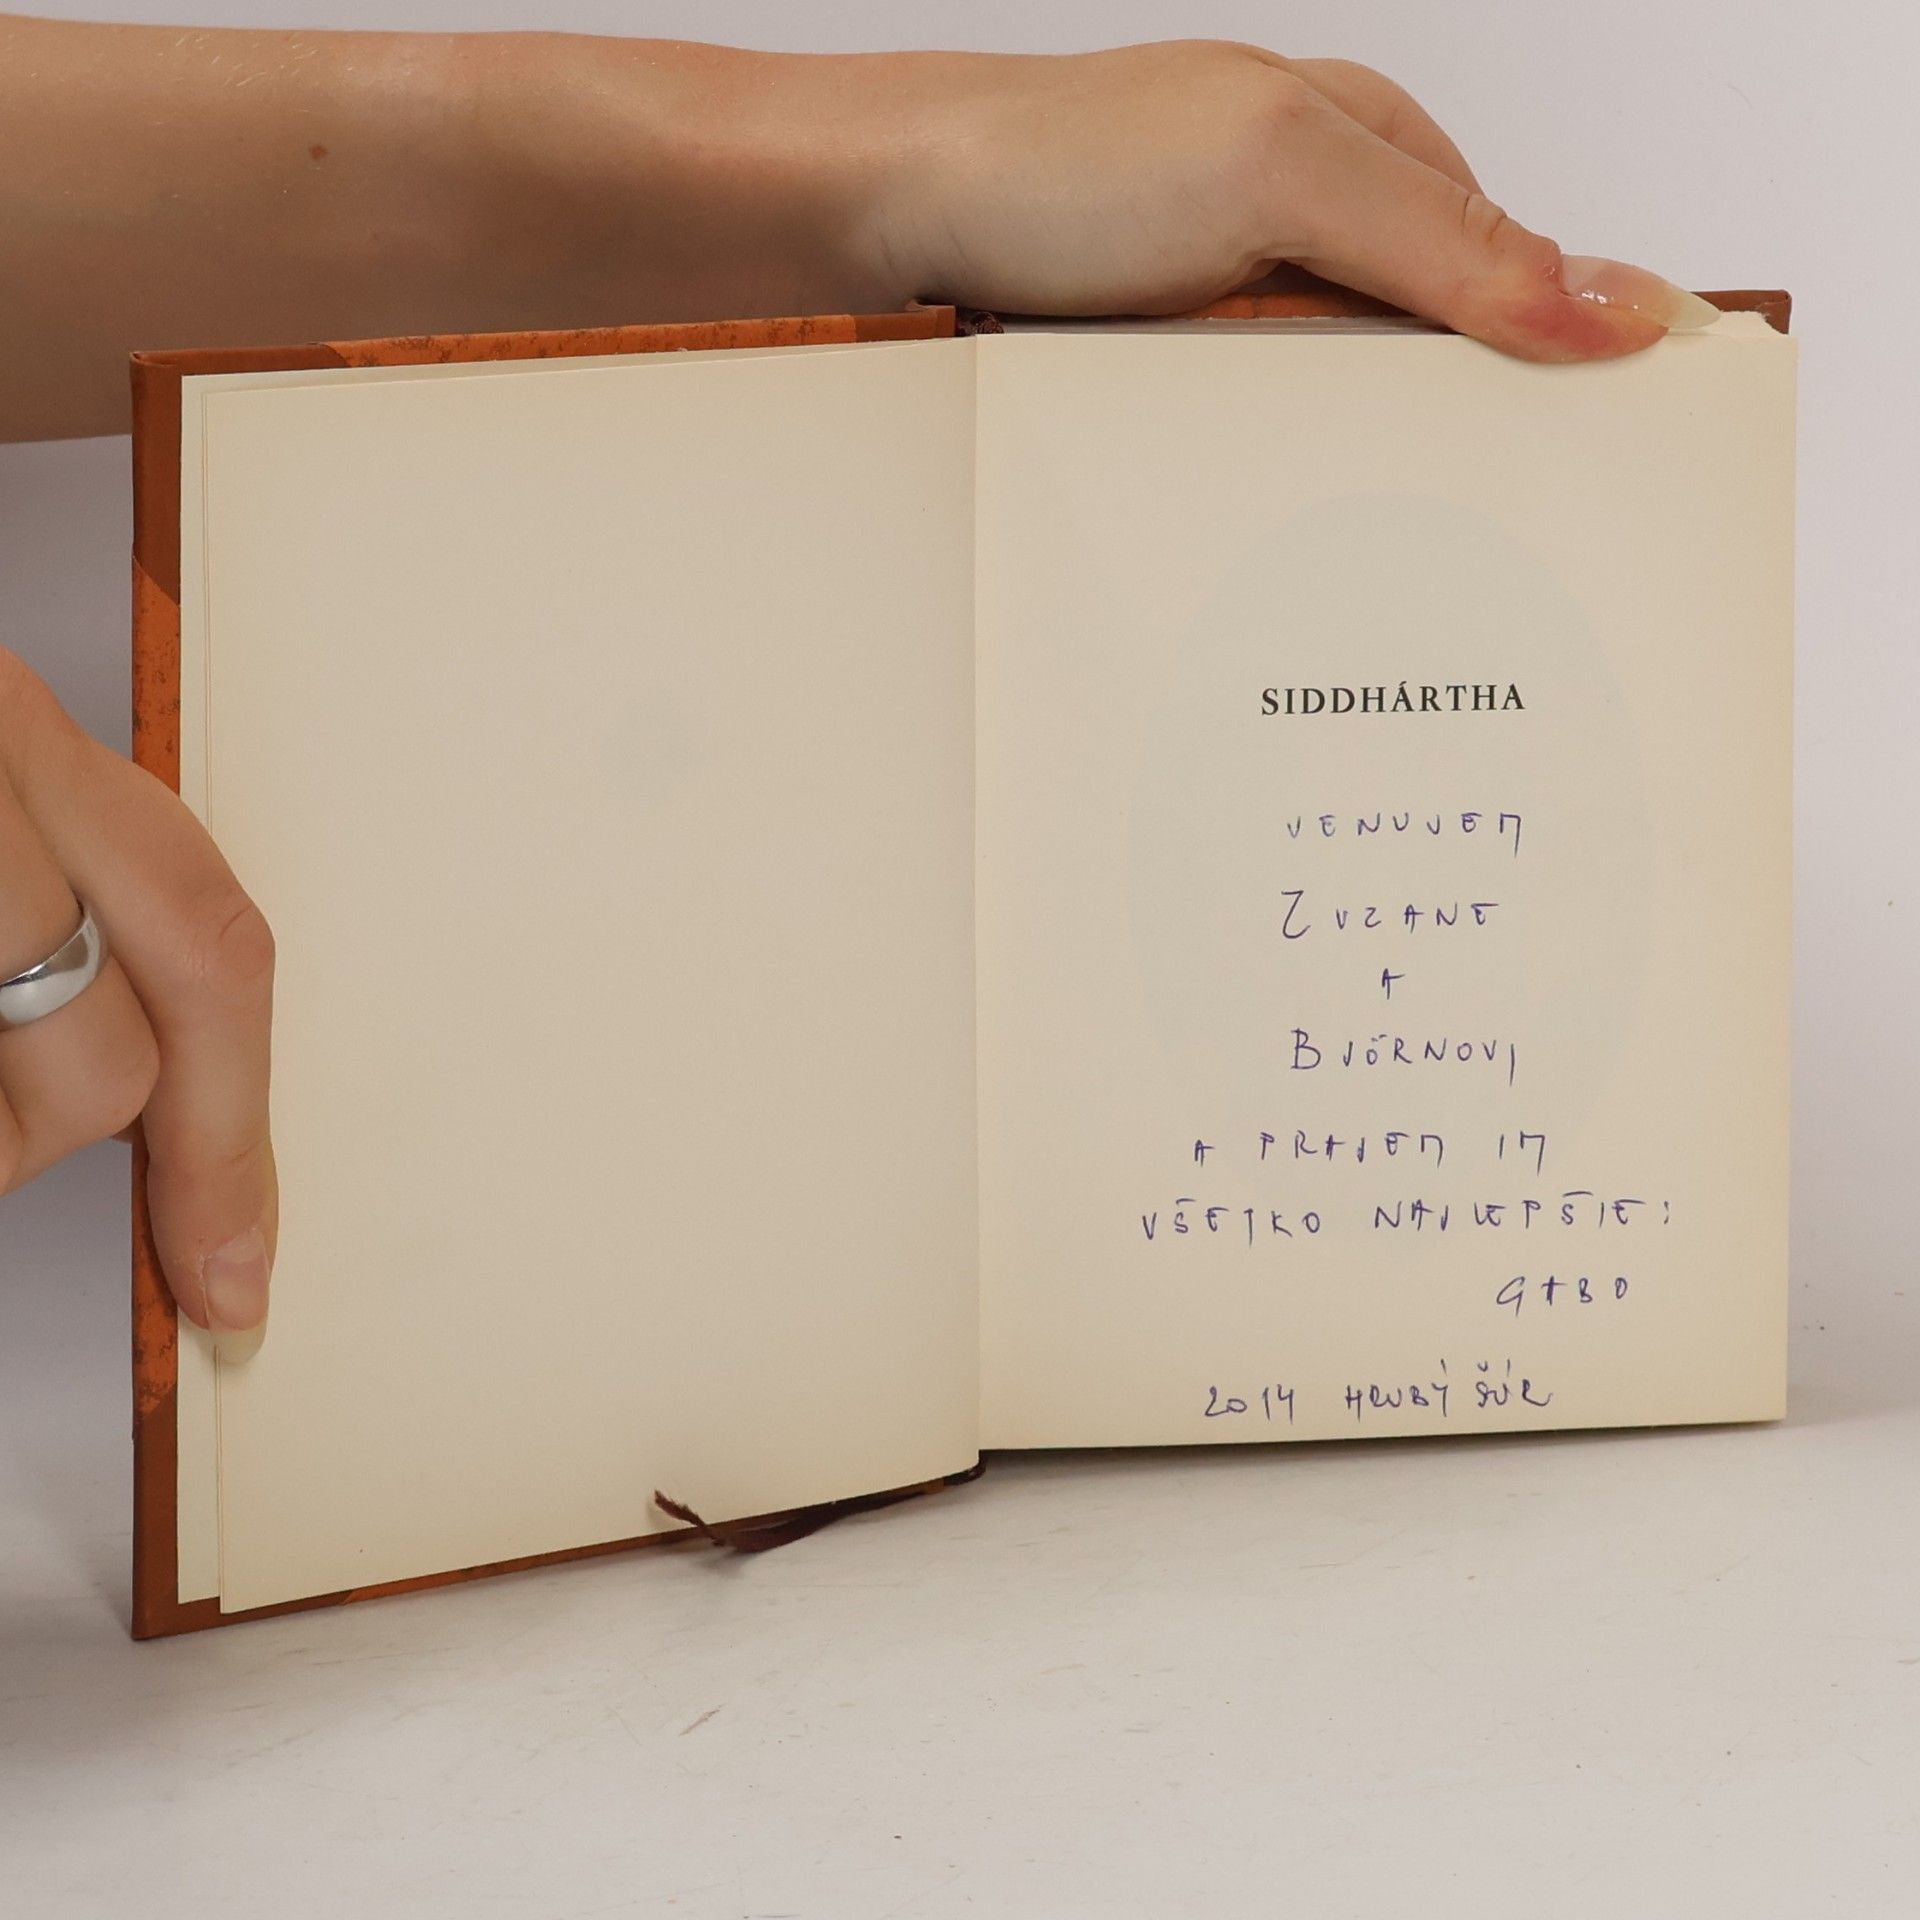 SIDDHÁRTHA
VENUJEM
ZUZANE
A
BJÖRNOVI
A PRAJEM IM
VŠETKO NAJLEPŠIE!
GABO
2014 HRUBÝ ŠÚR